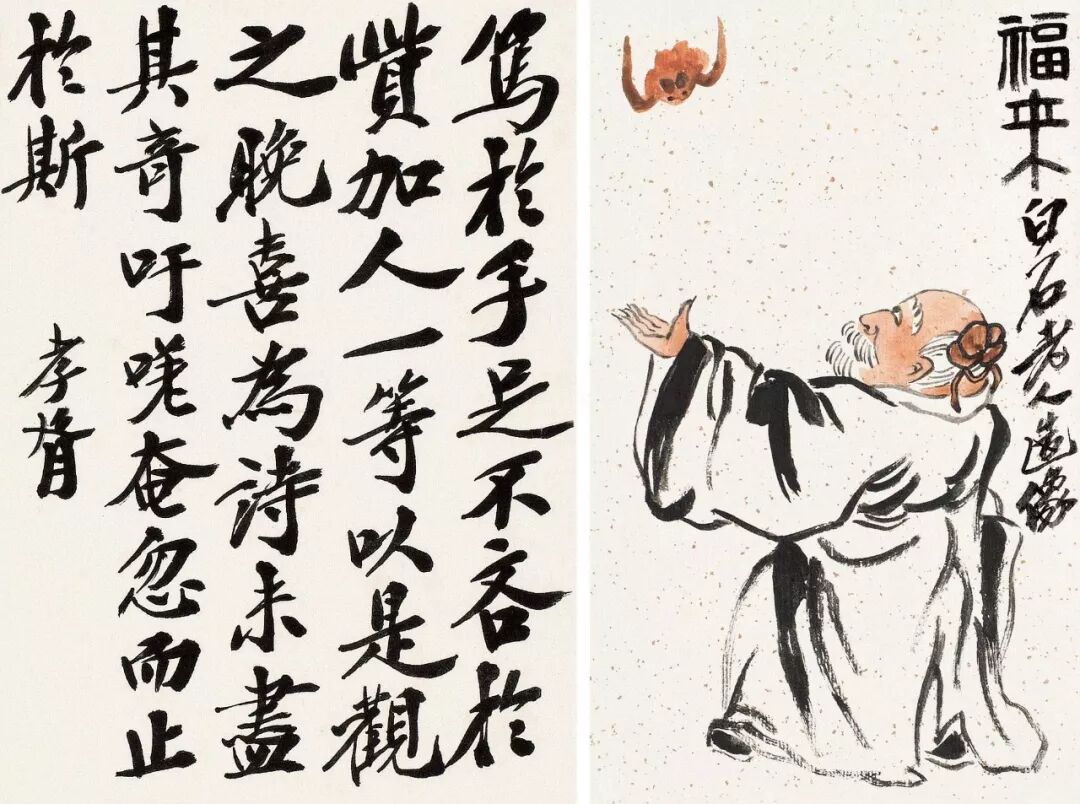 篤於手足不吝於
貲加人一等以是觀
之晚喜為詩未盡
其奇吁嗟奄忽而止
於斯
孝胥
福來白石老人造像